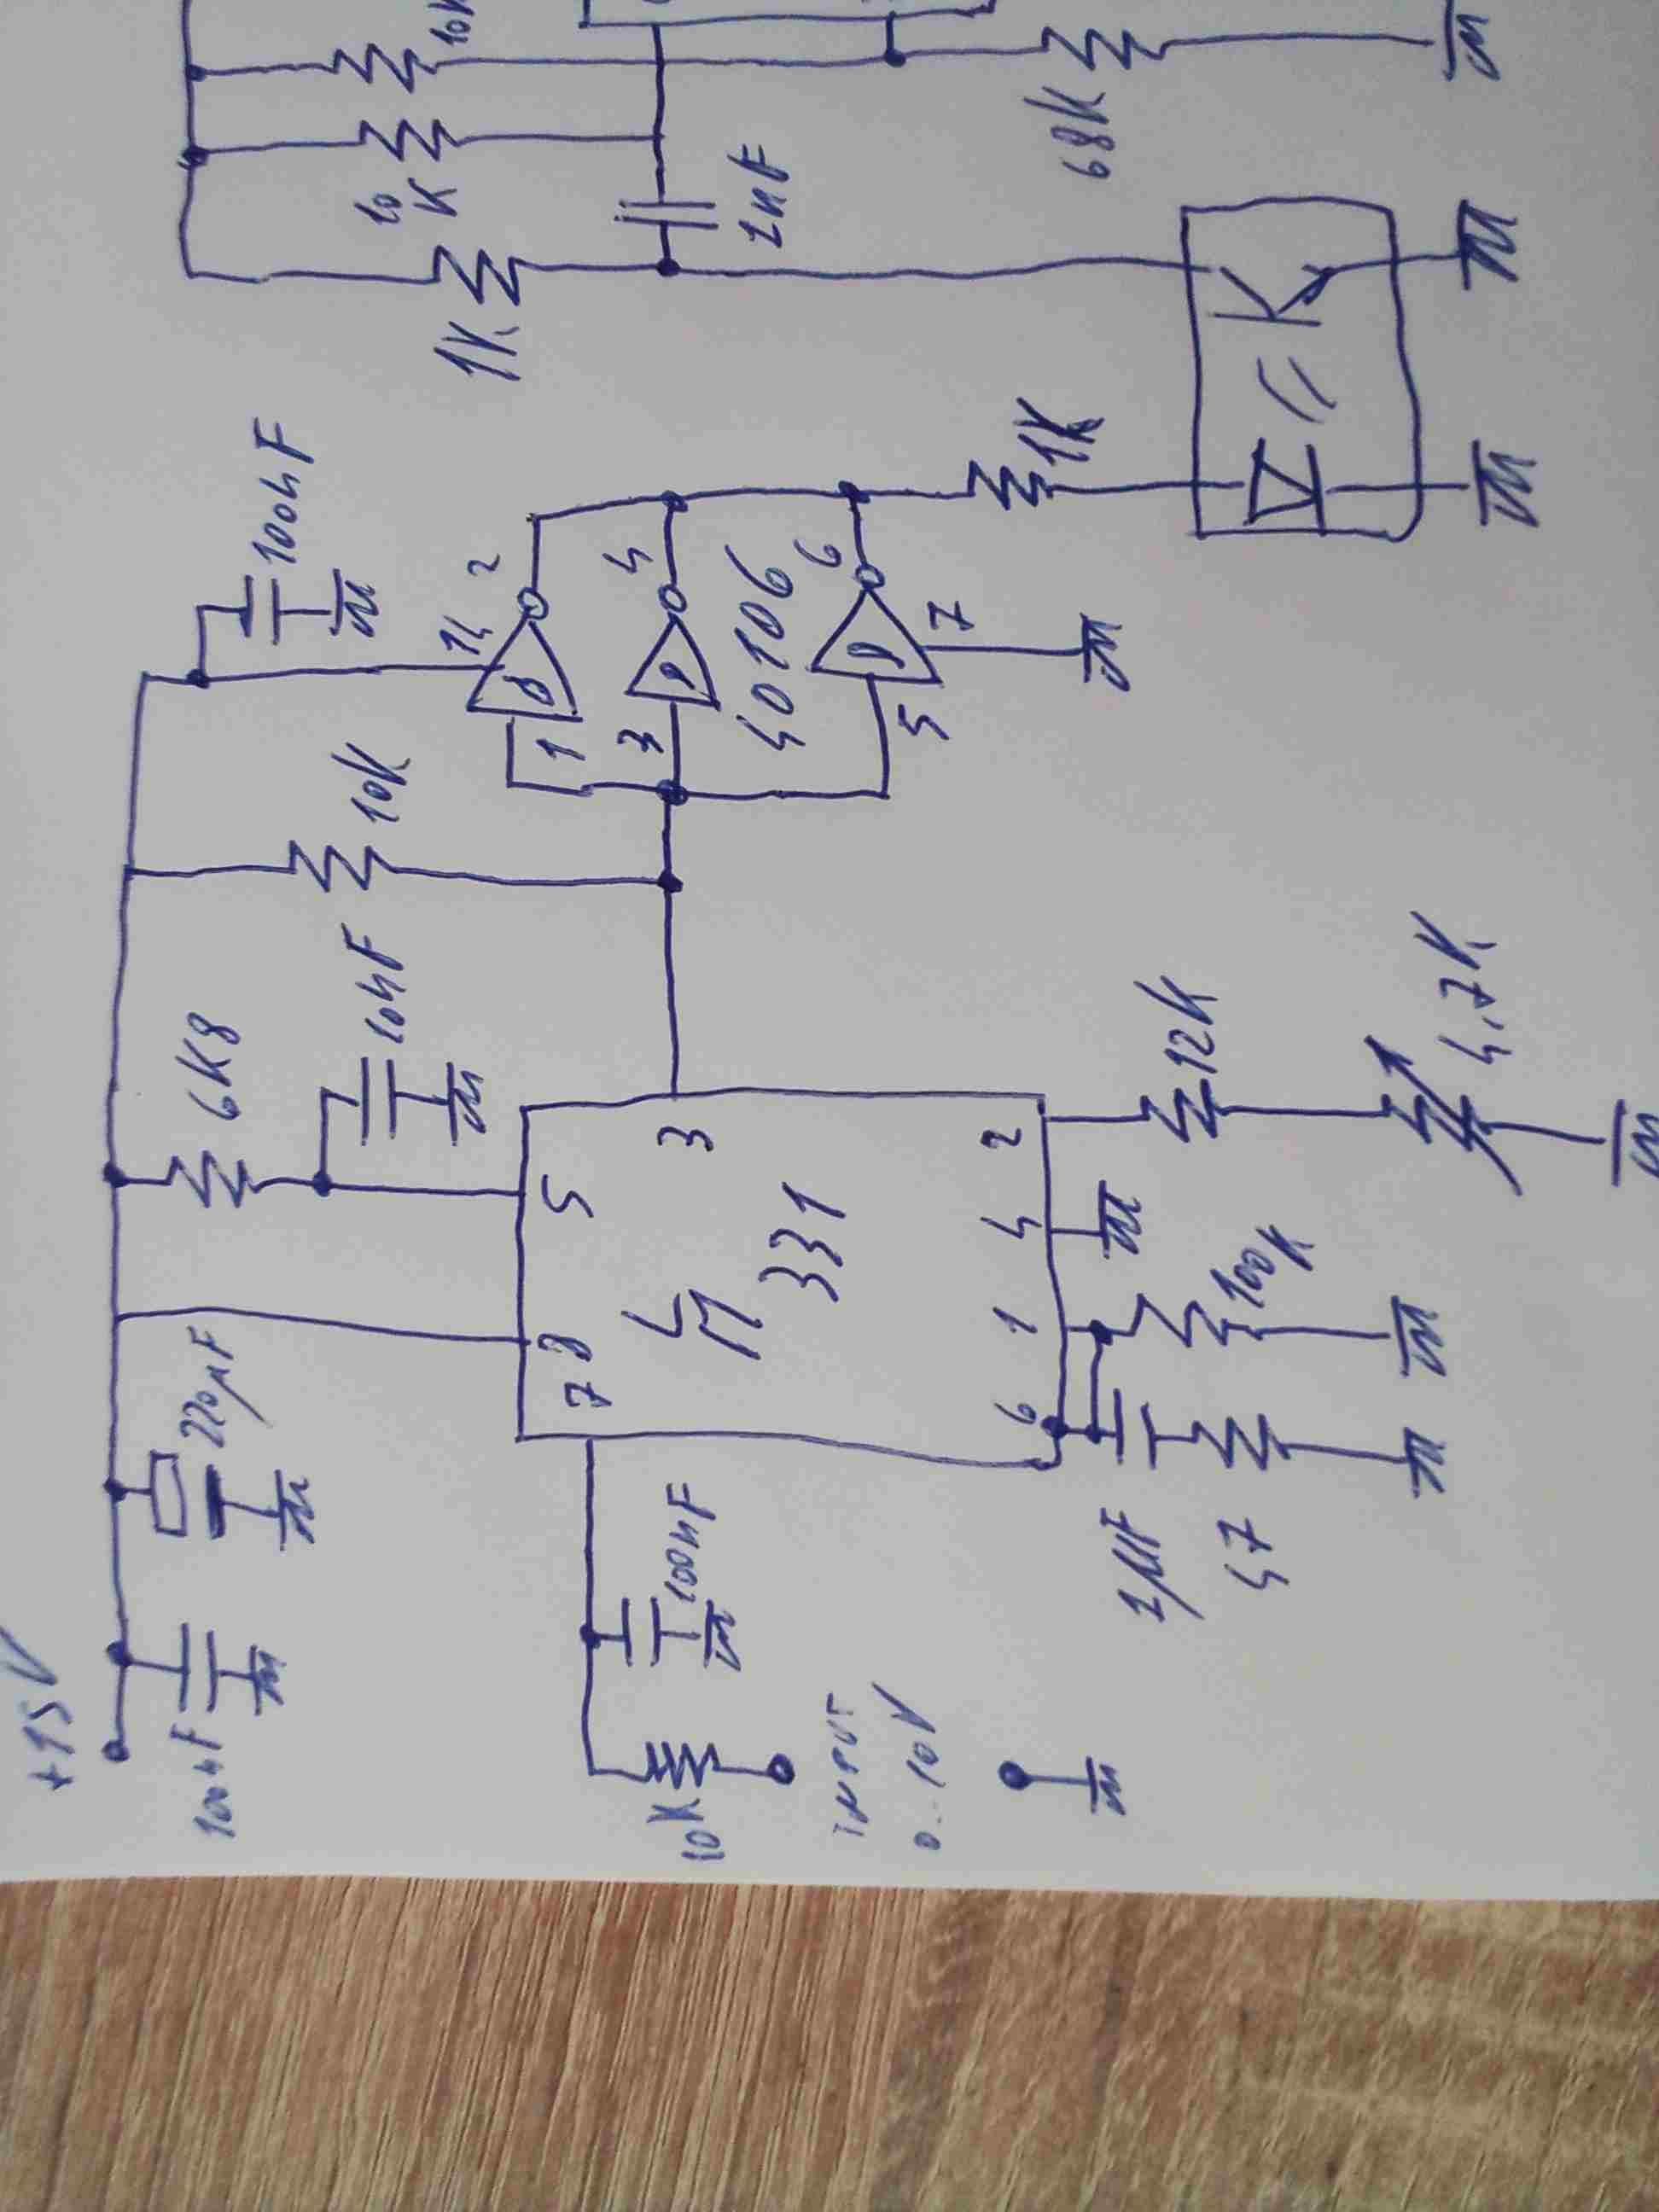 +15V
100nF
220µF
6K8
10nF
10K
100nF
14
1
2
3
4
40106
5
6
7
1K
1K
10
K
10K
1nF
68K
7
8
5
3
LM
331
6
1
4
2
10K
100nF
INPUT
0..10V
1µF
47
100K
12K
4,7K